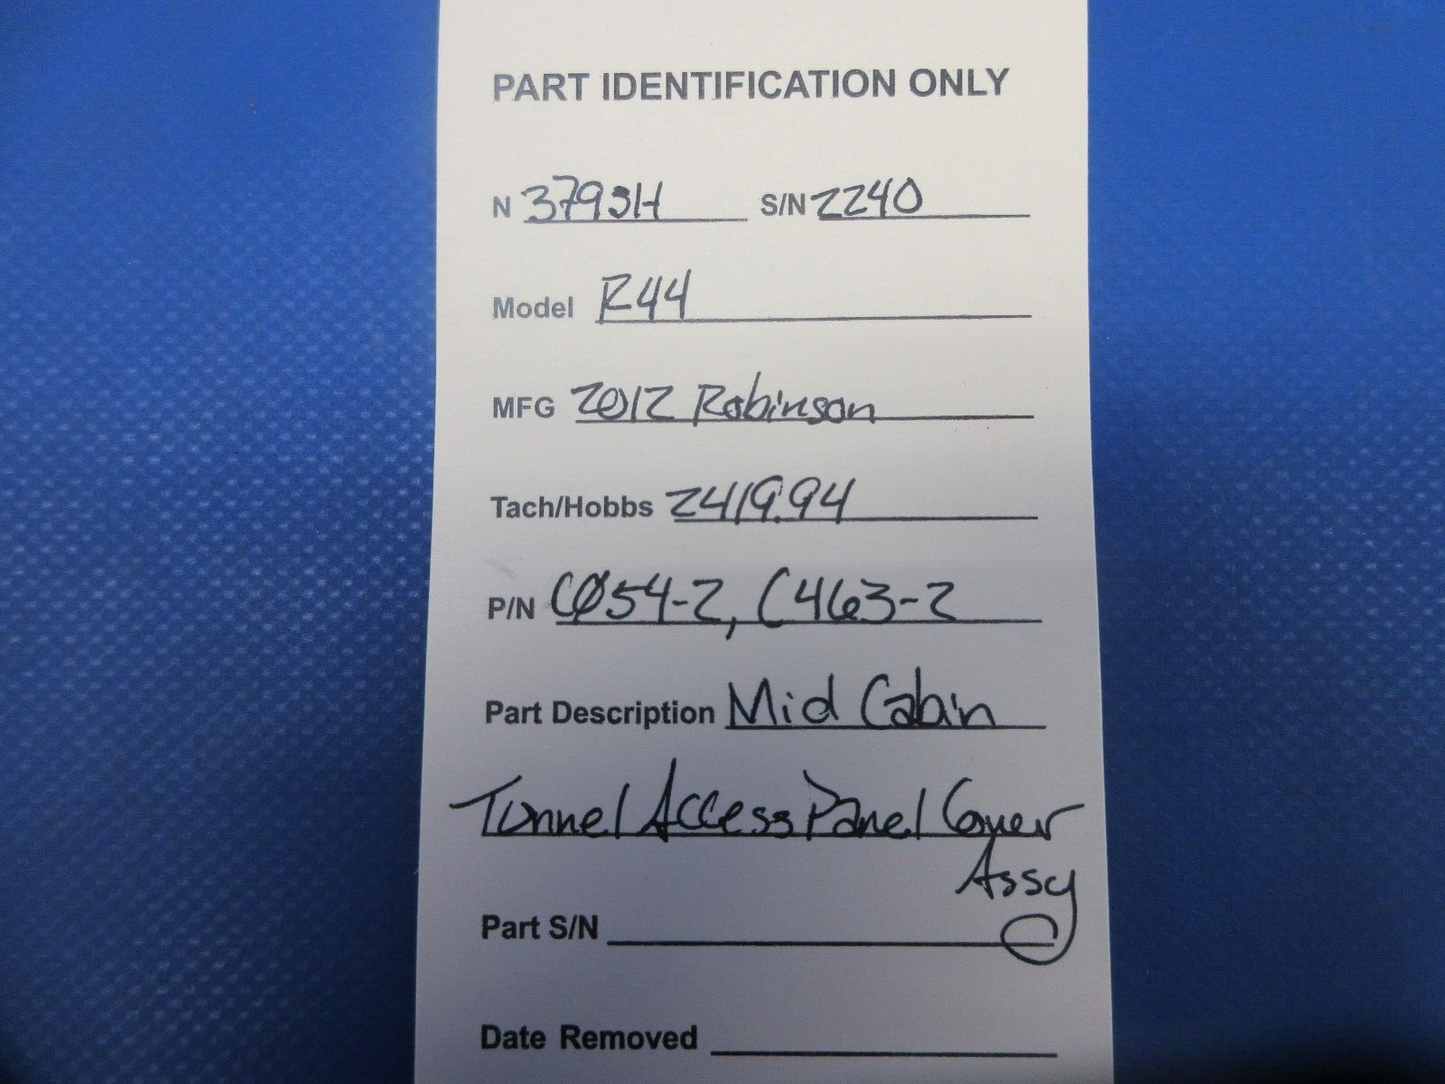 PART IDENTIFICATION ONLY
N 3793H S/N 2240
Model R44
MFG 2012 Robinson
Tach/Hobbs 2419.94
P/N C054-2, C463-2
Part Description Mid Cabin
Tunnel Access Panel Cover
Assy
Part S/N
Date Removed